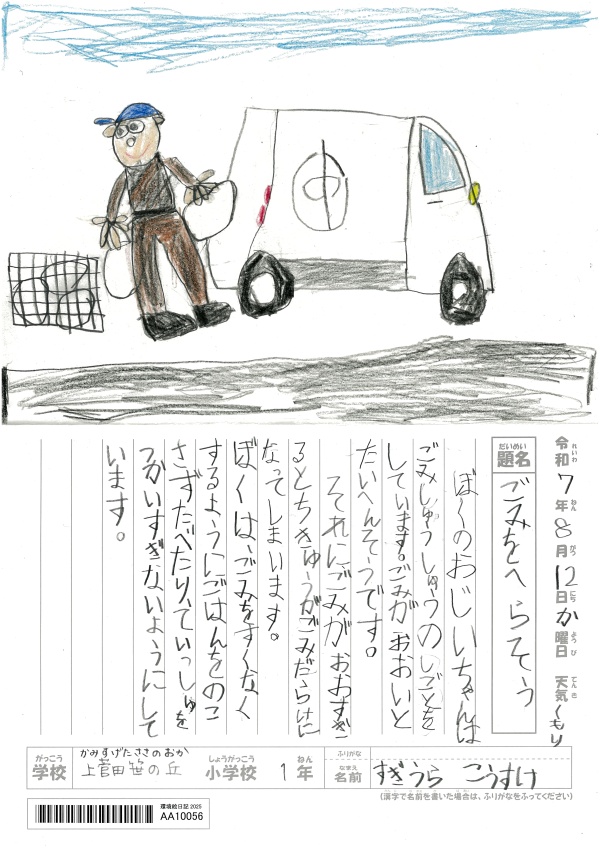 中
令和7年8月12日か曜日 天気くもり
れいわ ねん がつ にち ようび てんき
だいめい
題名
ごみをへらそう
ぼくのおじいちゃんは
ごみしゅうしゅうのしごとを
しています。ごみがおおいと
たいへんそうです。
それにごみがおおすぎ
るとちきゅうがごみだらけに
なってしまいます。
ぼくは、ごみをすくなく
するようにごはんをのこ
さずたべたり、ていっしゅを
つかいすぎないようにして
います。
がっこう
学校
かみすげたささのおか
上菅田笹の丘
しょうがっこう
小学校
1年
ねん
ふりがな
なまえ
名前
すぎうら こうすけ
(漢字で名前を書いた場合は、ふりがなをふってください)
環境絵日記 2025
AA10056